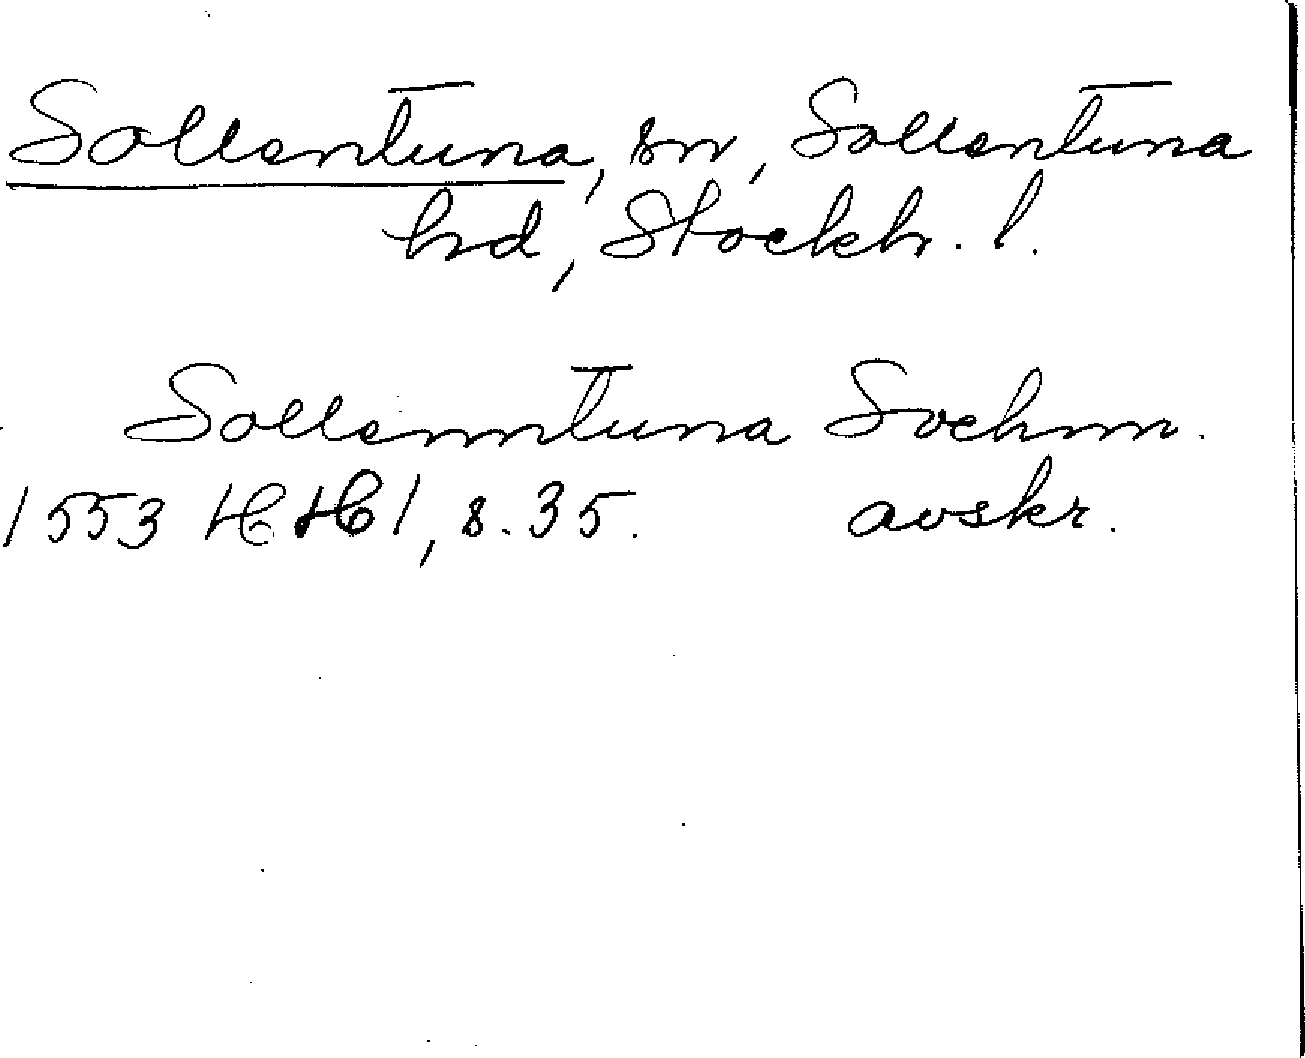 Sollentuna, sn, Sollentuna
hd, Stockh. l.
Sollenntuna Sochnn.
1553 HH 1, s. 35. avskr.